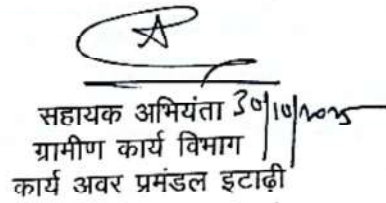 सहायक अभियंता 30/10/2025
ग्रामीण कार्य विभाग
कार्य अवर प्रमंडल इटाढ़ी